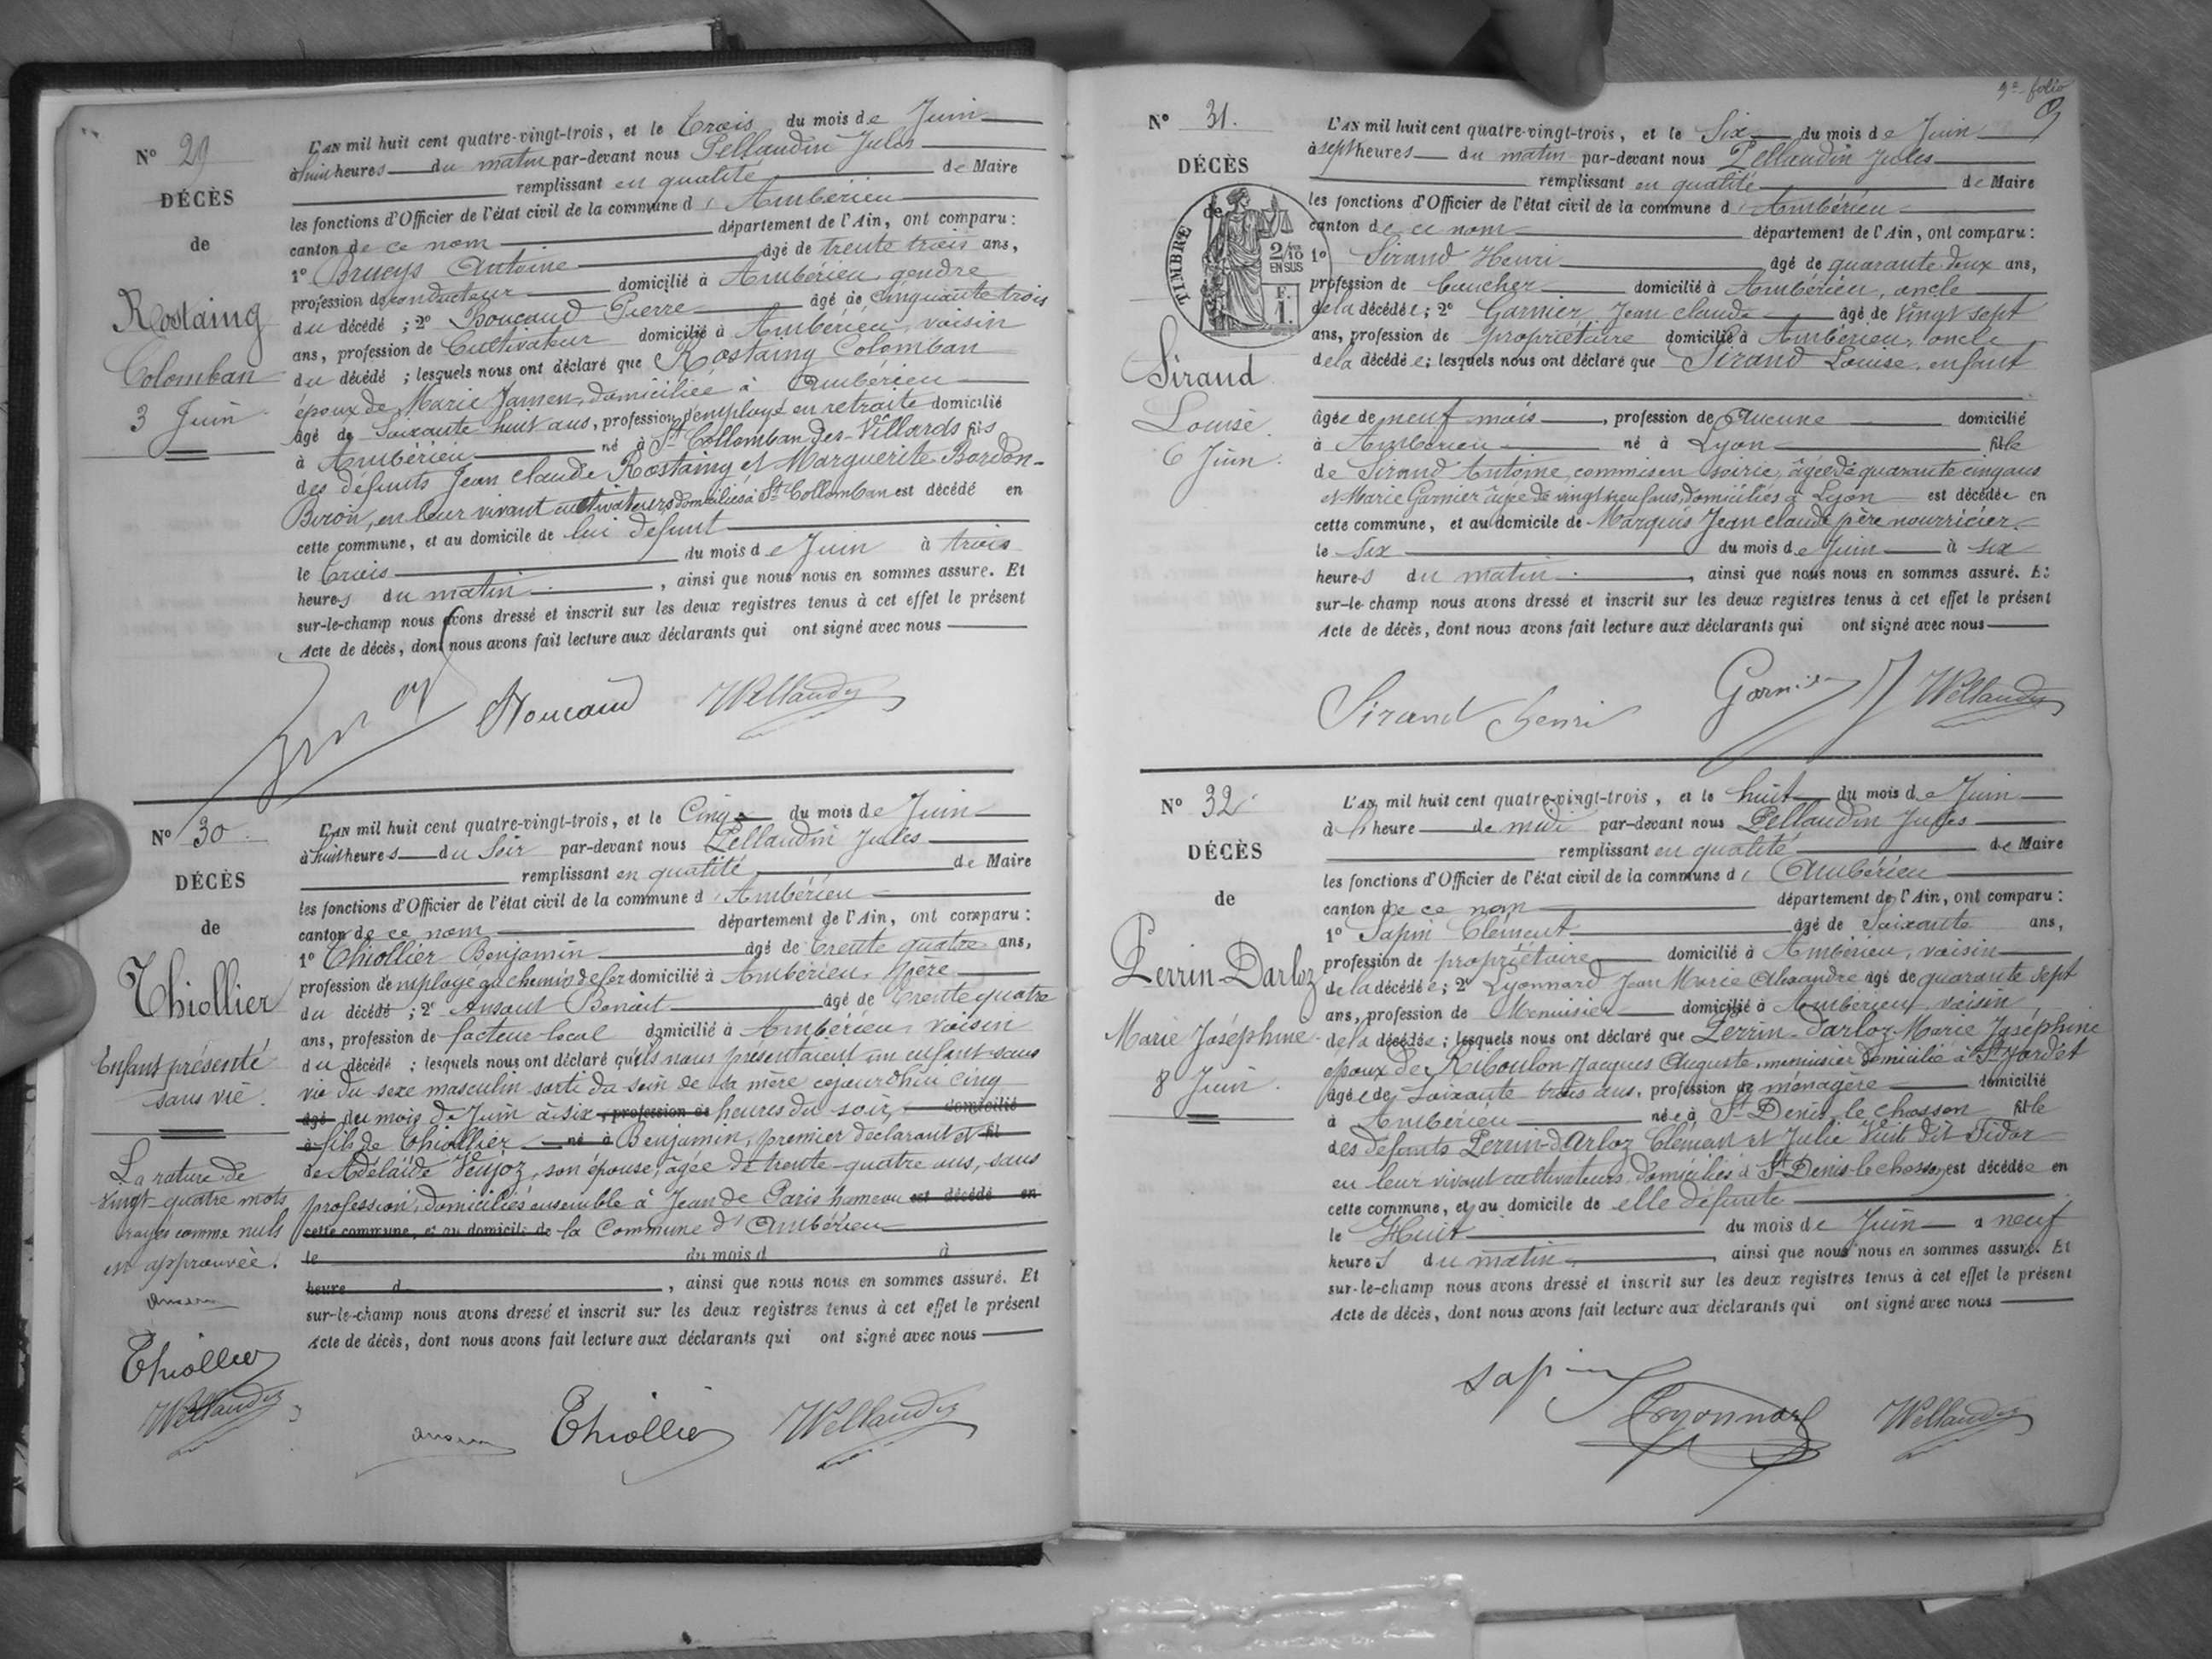 Nº 29
DÉCÈS
de
Rostaing
Colomban
3 Juin
L'AN mil huit cent quatre-vingt-trois, et le Trois du mois de Juin
à huit heures du matin par-devant nous Pellaudin Jules
remplissant en qualité de Maire
les fonctions d'Officier de l'état civil de la commune d'Ambérieu
canton de ce nom département de l'Ain, ont comparu :
1º Brueys Antoine âgé de trente trois ans,
profession de conducteur domicilié à Ambérieu, gendre
du décédé ; 2º Boucaud Pierre âgé de cinquante trois
ans, profession de Cultivateur domicilié à Ambérieu, voisin
du décédé ; lesquels nous ont déclaré que Rostaing Colomban
époux de Marie Jamen, domiciliée à Ambérieu
âgé de Soixante huit ans, profession d'employé en retraite domicilié
à Ambérieu né à St Collomban des-Villards fils
des défunts Jean Claude Rostaing et Marguerite Bordon-
Biron, en leur vivant cultivateurs domiciliés à St Collomban est décédé en
cette commune, et au domicile de lui défunt
le trois du mois de Juin à trois
heures du matin, ainsi que nous nous en sommes assuré. Et
sur-le-champ nous avons dressé et inscrit sur les deux registres tenus à cet effet le présent
Acte de décès, dont nous avons fait lecture aux déclarants qui ont signé avec nous
Boucaud
Nº 30
DÉCÈS
de
Thiollier
Enfant présenté
sans vie.
La rature de
vingt-quatre mots
rayés comme nuls
est approuvée.
Thiollier
L'AN mil huit cent quatre-vingt-trois, et le Cinq du mois de Juin
à huit heures du Soir par-devant nous Pellaudin Jules
remplissant en qualité de Maire
les fonctions d'Officier de l'état civil de la commune d'Ambérieu
canton de ce nom département de l'Ain, ont comparu :
1º Thiollier Benjamin âgé de trente quatre ans,
profession d'employé au chemin de fer domicilié à Ambérieu, père
du décédé ; 2º Ansout Benoit âgé de trente quatre
ans, profession de facteur local domicilié à Ambérieu, voisin
du décédé ; lesquels nous ont déclaré qu'ils nous présentaient un enfant sans
vie du sexe masculin sorti du sein de sa mère cejourd'hui cinq
âgé du mois de Juin à six, profession de heures du soir, domicilié
à fils de Thiollier né à Benjamin, premier déclarant et fil
de Adélaïde Veujoz, son épouse, âgée de trente-quatre ans, sans
profession, domiciliés ensemble à Jean de Paris hameau est décédé en
cette commune, et au domicile de la Commune d'Ambérieu
le du mois d à
heure d, ainsi que nous nous en sommes assuré. Et
sur-le-champ nous avons dressé et inscrit sur les deux registres tenus à cet effet le présent
Acte de décès, dont nous avons fait lecture aux déclarants qui ont signé avec nous
Thiollier
9e folio
9
Nº 31.
DÉCÈS
de
TIMBRE
2/10
EN SUS
F.
1.
Sirand
Louise.
6 Juin.
L'AN mil huit cent quatre-vingt-trois, et le Six du mois de Juin
à sept heures du matin par-devant nous Pellaudin Jules
remplissant en qualité de Maire
les fonctions d'Officier de l'état civil de la commune d'Ambérieu
canton de ce nom département de l'Ain, ont comparu :
1º Sirand Henri âgé de quarante deux ans,
profession de boucher domicilié à Ambérieu, oncle
de la décédée ; 2º Garnier Jean claude âgé de vingt sept
ans, profession de propriétaire domicilié à Ambérieu, oncle
de la décédée ; lesquels nous ont déclaré que Sirand Louise, enfant
âgée de neuf mois, profession de Aucune domicilié
à Ambérieu né à Lyon fille
de Sirand Antoine, commis en soirie, âgée de quarante cinq ans
et Marie Garnier âgée de vingt neuf ans, domiciliés à Lyon est décédée en
cette commune, et au domicile de Marquis Jean claude père nourricier
le six du mois de Juin à six
heures du matin, ainsi que nous nous en sommes assuré. Et
sur-le-champ nous avons dressé et inscrit sur les deux registres tenus à cet effet le présent
Acte de décès, dont nous avons fait lecture aux déclarants qui ont signé avec nous
Sirand henri Garnier
Nº 32
DÉCÈS
de
Perrin-Darloz
Marie Joséphine
8 Juin.
L'AN mil huit cent quatre-vingt-trois, et le huit du mois de Juin
à 1 heure de midi par-devant nous Pellaudin Jules
remplissant en qualité de Maire
les fonctions d'Officier de l'état civil de la commune d'Ambérieu
canton de ce nom département de l'Ain, ont comparu :
1º Sapin Clément âgé de Soixante ans,
profession de propriétaire domicilié à Ambérieu, voisin
de la décédée ; 2º Lyonnard Jean Marie Alexandre âgé de quarante sept
ans, profession de Menuisier domicilié à Ambérieu, voisin
de la décédée ; lesquels nous ont déclaré que Perrin-Darloz Marie Joséphine
époux de Riboulon Jacques Auguste, menuisier domicilié à
âgée de Soixante trois ans, profession de ménagère domicilié
à Ambérieu née à St Denis le chosson fille
des défunts Perrin-d'Arloz Clément et Julie Vuit dit Tidor
en leur vivant cultivateurs domiciliés à St Denis-le chosson est décédée en
cette commune, et au domicile de elle défunte
le Huit du mois de Juin à neuf
heures du matin, ainsi que nous nous en sommes assuré. Et
sur-le-champ nous avons dressé et inscrit sur les deux registres tenus à cet effet le présent
Acte de décès, dont nous avons fait lecture aux déclarants qui ont signé avec nous
Sapin
Lyonnard